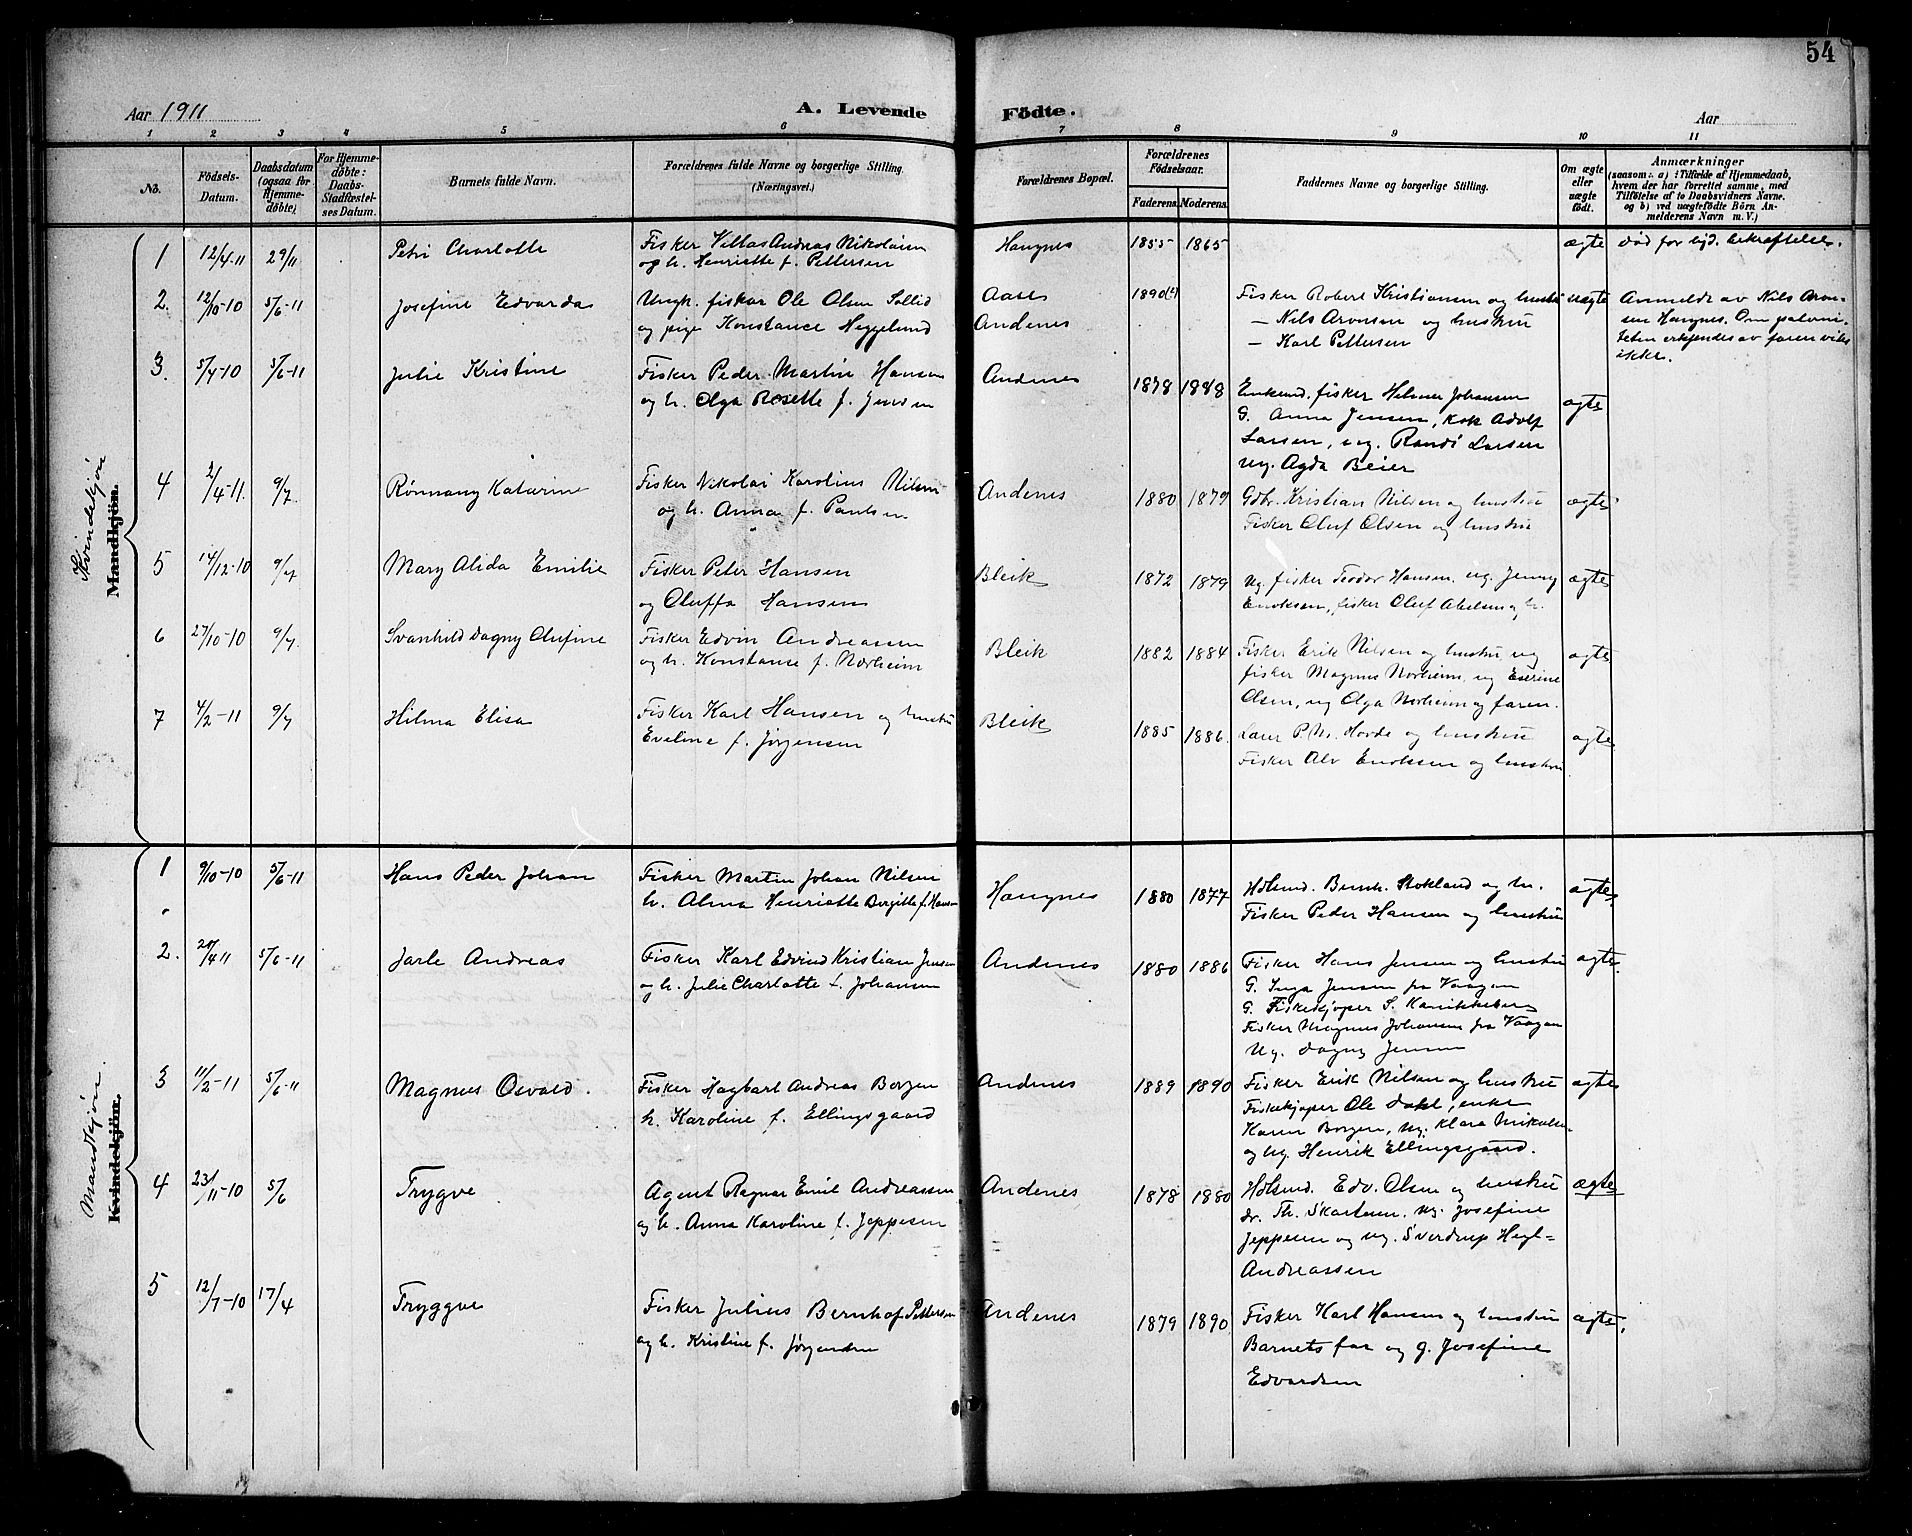 54
Aar 1911
A. Levende Födte.
Aar
1 2 3 4 5 6 7 8 9 10 11
No.
Födsels-Datum.
Daabsdatum (ogsaa for Hjemme-döbte)
For Hjemme-døbte: Daabs-Stadfæstel-ses Datum.
Barnets fulde Navn.
Forældrenes fulde Navne og borgerlige Stilling. (Næringsvei.)
Forældrenes Bopæl.
Forældrenes Födselsaar.
Faderens Moderens
Faddernes Navne og borgerlige Stilling.
Om ægte eller uægte födt.
Anmærkninger
(saasom: a) i Tilfælde af Hjemmedaab,
hvem der har forrettet samme, med
Tilföielse af to Daabsvidners Navne.
og b) ved uægtefödte Börn An-
melderens Navn m. V.)
Kvindekjön
Mandkjön.
1 12/4-11 29/11 Petri Charlotte
Fisker Villas Andreas Nikolaisen
og h. Henriette f. Pettersen
Haugnes 1855 1865 ægte død før bijd. bekræftelse.
2. 12/10-10 5/6-11 Josefine Edvarda
Ungk. fisker Ole Olsen Sollid
og pige Konstance Heggelund
Aase
Andenes
1890
Fisker Robert Kristiansen og hustru
— Nils Aronsen og hustru
— Karl Pettersen
uægte
Anmeldt av Nils Aron-
sen Haugnes. Om paterni-
teten erkjendes av faren vides
ikke.
3. 5/4-10 5/6-11 Julie Kristine
Fisker Peder Martin Hansen
og h. Olga Rosette f. Jensen
Andenes 1878 1888
Enkemd. fisker Helmer Johansen
G. Anna Jensen, kok Adolf
Larsen, ug. Randi Larsen
ug. Agda Beier
ægte
4 2/4-11. 9/7 Rönnaug Katarine
Fisker Nikolai Karolius Nilsen
og h. Anna f. Paulsen
Andenes 1880 1879
Gdbr. Kristian Nilsen og hustru
Fisker Oluf Olsen og hustru
ægte
5 14/12-10 9/7 Mary Alida Emilie
Fisker Peter Hansen
og Oluffa Hansen
Bleik 1872 1879
Ug. fisker Teodor Hansen, ug. Jenny
Enoksen, fisker Oluf Abelsen og h.
ægte
6 27/10-10 9/7. Svanhild Dagny Olufine
Fisker Edvin Andreassen
og h. Konstanse f. Norheim
Bleik 1882 1884
Fisker Erik Nilsen og hustru, ug
fisker Magnus Norheim, ug Eserine
Olsen, ug Olga Norheim og faren.
ægte
7 4/2-11 9/7 Hilma Elisa
Fisker Karl Hansen og hustru
Eveline f. Jörgensen
Bleik 1885 1886.
Lærer P. M. Horde og hustru
Fisker Alv Enoksen og hustru.
ægte
Mandkjön.
Kvindekjön.
1 9/10-10 5/6-11 Hans Peder Johan
Fisker Martin Johan Nilsen
h. Alma Henriette Bergitte f. Hansen
Haugnes 1880 1877
Hdlsmd. Bernh. Stokland og h.
Fisker Peder Hansen og hustru
ægte.
2. 20/4 11 5/6-11 Jarle Andreas
Fisker Karl Edvind Kristian Jensen
og h. Julie Charlotte f. Johansen
Andenes 1880 1886
Fisker Hans Jensen og hustru
G. Inga Jensen fra Vaagan
G. Fiskekjøper S. Kanikkeberg
Fisker Magnus Johansen fra Vaagan
Ug. Dagny Jensen
ægte.
3 11/2-11 5/6-11 Magnus Osvald.
Fisker Hagbart Andreas Borgen
h. Karoline f. Ellingsgaard
Andenes 1889 1890
Fisker Erik Nilsen og hustru
Fiskekjøper Ole Dahl, enke
Karen Borgen, ug. Klara Nikolai-
og ug. Henrik Ellingsgaard.
ægte
4 23/11-10 5/6 Trygve
Agent Ragnar Emil Andreassen
og h. Anna Karoline f. Jeppesen
Andenes 1878 1880
Hdlsmd. Edv. Olsen og hustru
dr. Th. Skartum, ug. Josefine
Jeppesen og ug. Sverdrup Hegl-
Andreassen
ægte
5 12/7-10 17/4 Tryggve
Fisker Julius Bernhof Pettersen
og h. Kristine f. Jørgensen
Andenes 1879 1890
Fisker Karl Hansen og hustru
Barnets far og g. Josefine
Edvardsen
ægte.